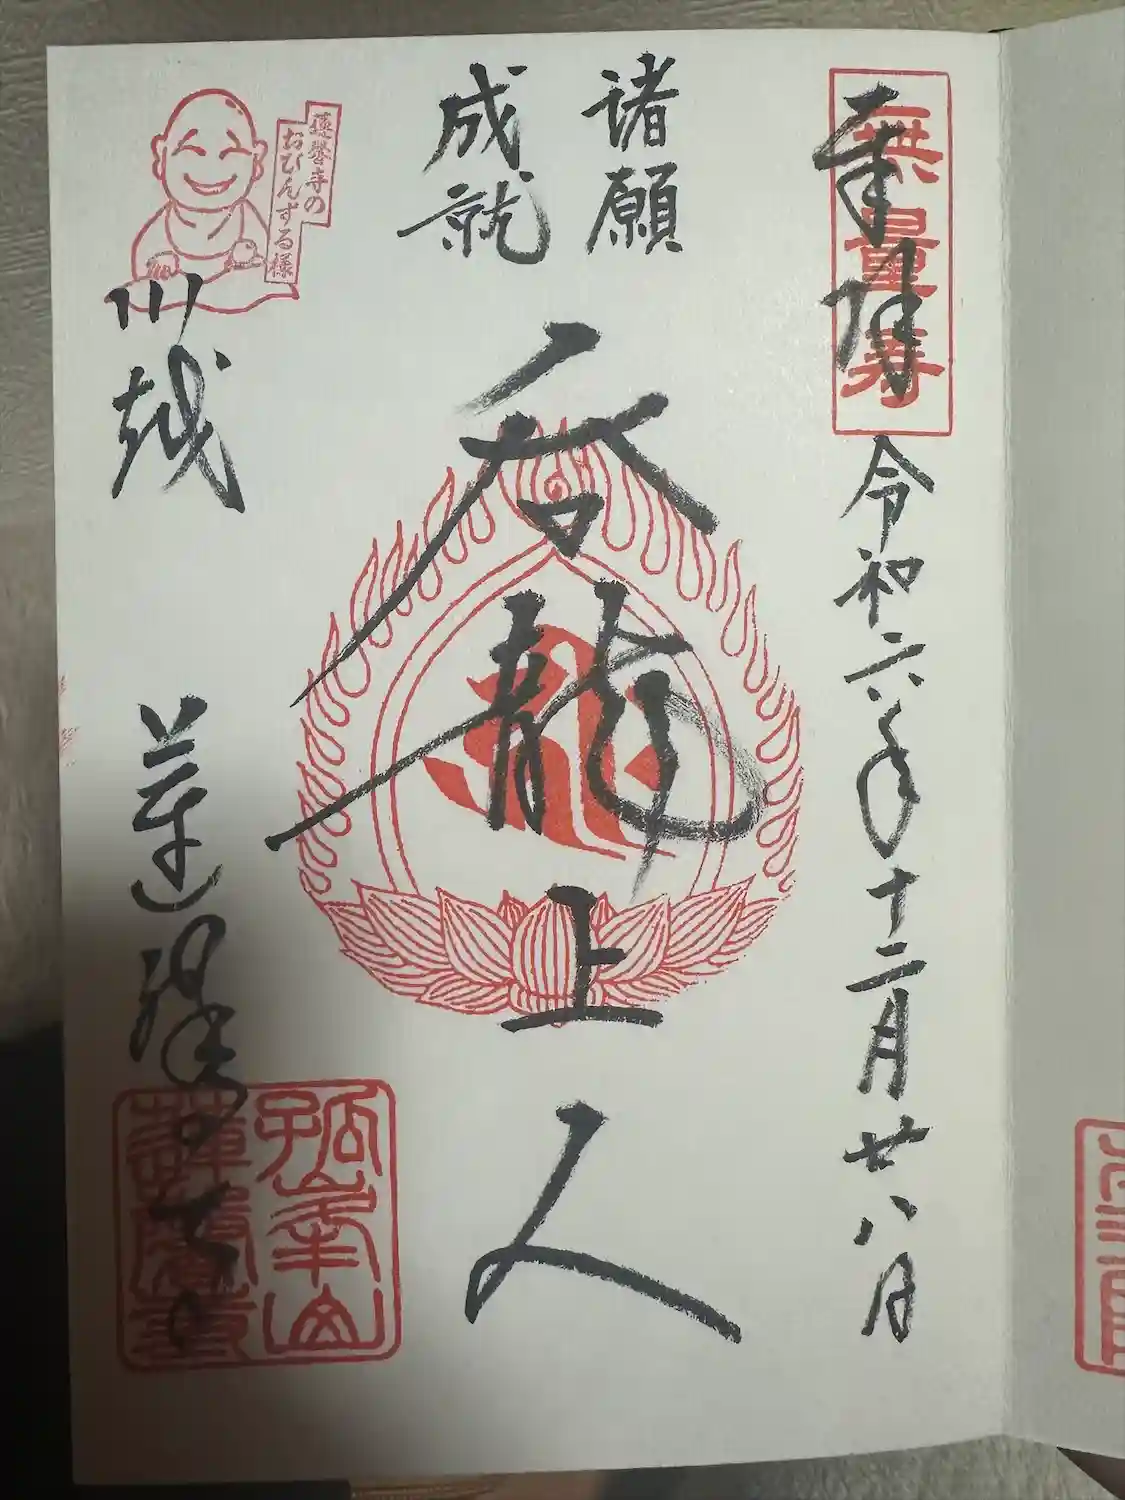 奉拝
無量寿
令和六年十二月廿八日
諸願
成就
呑龍上人
蓮馨寺の
おびんずる様
川越
蓮馨寺
孤峯山
蓮馨寺